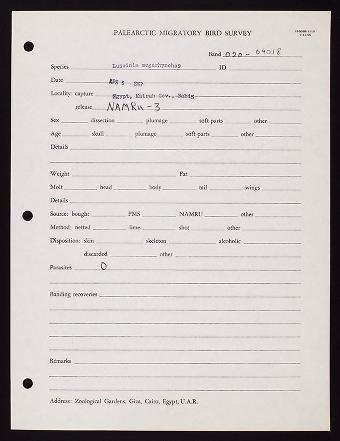 PALEARCTIC MIGRATORY BIRD SURVEY
Band 020 - 04018
Species Luscinia megarhynchos ID
Date APR 5 1967
Locality: capture Egypt, Matruh Gov., Bahig
release NAMRU-3
Sex dissection plumage soft-parts other
Age skull plumage soft-parts other
Details
Weight Fat
Molt head body tail wings
Details
Source: bought PMS NAMRU other
Method: netted lime shot other
Disposition: skin skeleton alcoholic
discarded other
Parasites 0
Banding recoveries
Remarks
Address: Zoological Gardens, Giza, Cairo, Egypt, U.A.R.